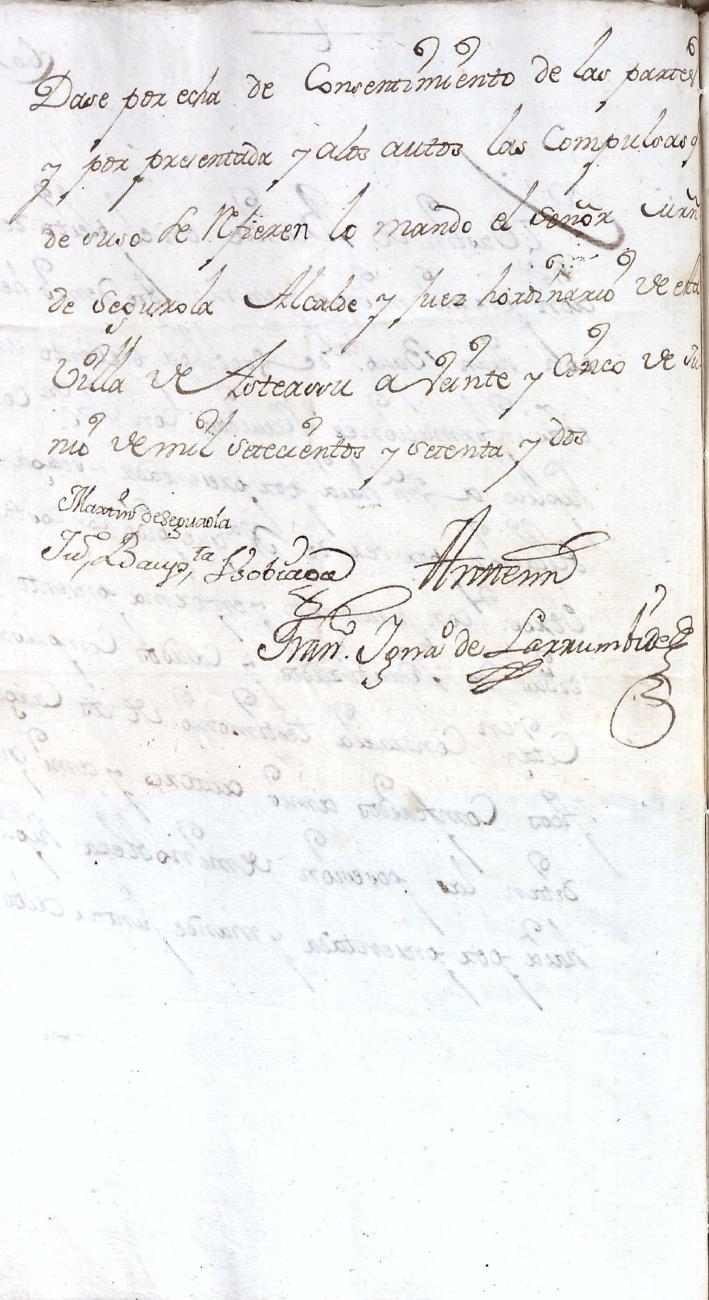 Dase por echa de Consentimiento de las partes
y por presentada y alos autos las Compulsas q
de suso se Refieren lo mando el Señor
de Segurola Alcalde y Juez hordinario de esta
Villa de Asteassu a Veinte y Cinco de Ju
nio de mil setecientos y setenta y dos
Martin de Segurola
Antemi
Fran.co Igna.o de Larrumbide